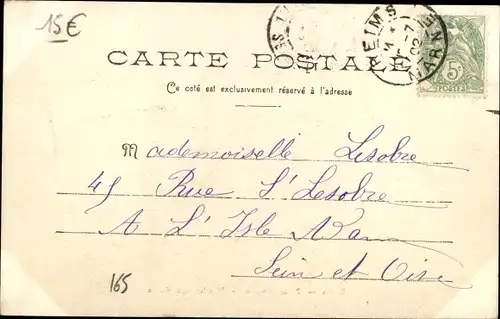 15€
CARTE POSTALE
Ce côté est exclusivement réservé à l'adresse
REIMS
MARNE
7
02
5c
POSTES
Mademoiselle Lesobre
45 Rue S' Lesobre
A L'Isle Adam
Sein et Oise
165